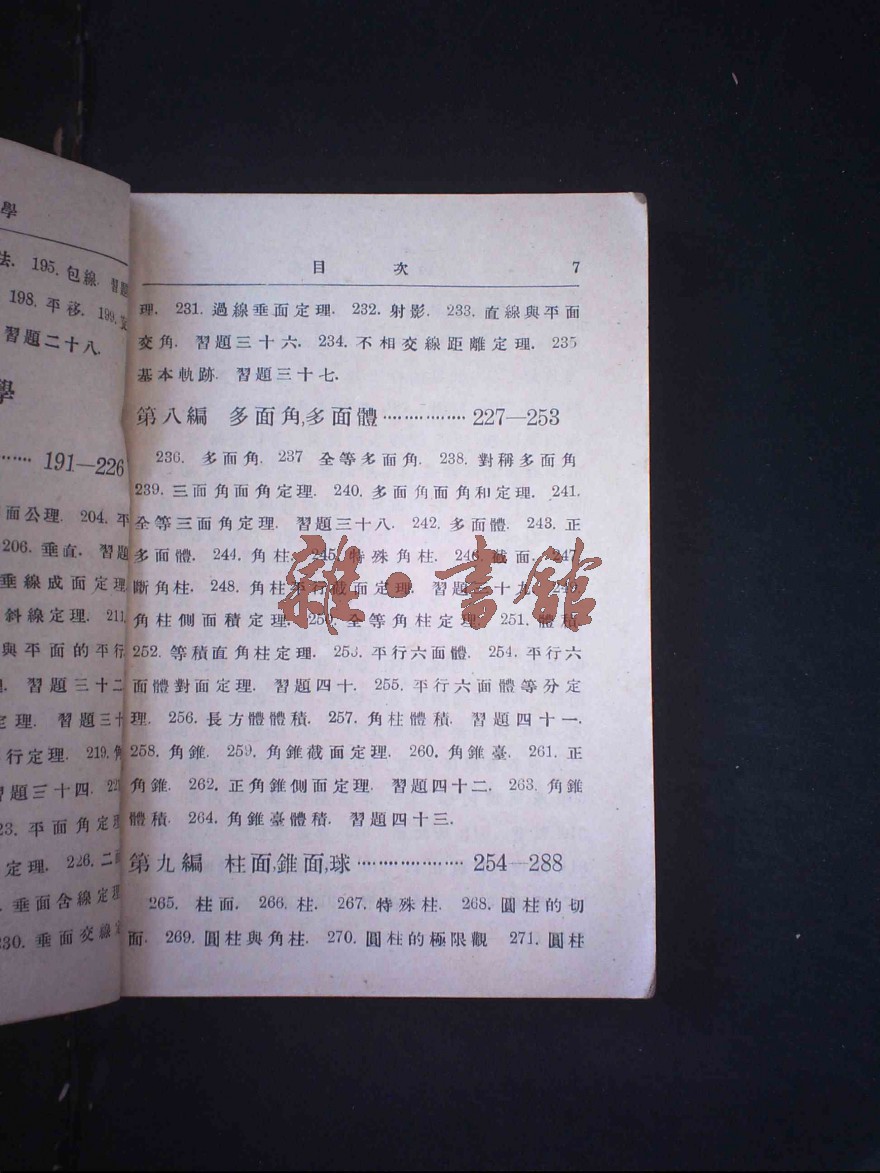 學
法. 195. 包線. 習題
198. 平移. 199.
習題二十八.
學
…… 191—226
面公理. 204. 平
206. 垂直. 習題
垂線成面定理
斜線定理. 211.
與平面的平行
習題三十二
定理. 習題三十
行定理. 219. 角
習題三十四.
23. 平面角定理
定理. 226. 二面
. 垂面含線定理
230. 垂面交線定
目 次 7
理. 231. 過線垂面定理. 232. 射影. 233. 直線與平面
交角. 習題三十六. 234. 不相交線距離定理. 235
基本軌跡. 習題三十七.
第八編 多面角,多面體 …………… 227—253
236. 多面角. 237 全等多面角. 238. 對稱多面角
239. 三面角面角定理. 240. 多面角面角和定理. 241.
全等三面角定理. 習題三十八. 242. 多面體. 243. 正
多面體. 244. 角柱. 245. 特殊角柱. 246. 截面. 247.
斷角柱. 248. 角柱平行截面定理. 習題三十九. 249.
角柱側面積定理. 250. 全等角柱定理. 251. 體積.
252. 等積直角柱定理. 253. 平行六面體. 254. 平行六
面體對面定理. 習題四十. 255. 平行六面體等分定
理. 256. 長方體體積. 257. 角柱體積. 習題四十一.
258. 角錐. 259. 角錐截面定理. 260. 角錐臺. 261. 正
角錐. 262. 正角錐側面定理. 習題四十二. 263. 角錐
體積. 264. 角錐臺體積. 習題四十三.
第九編 柱面,錐面,球 ………………… 254—288
265. 柱面. 266. 柱. 267. 特殊柱. 268. 圓柱的切
面. 269. 圓柱與角柱. 270. 圓柱的極限觀 271. 圓柱
雜·書館